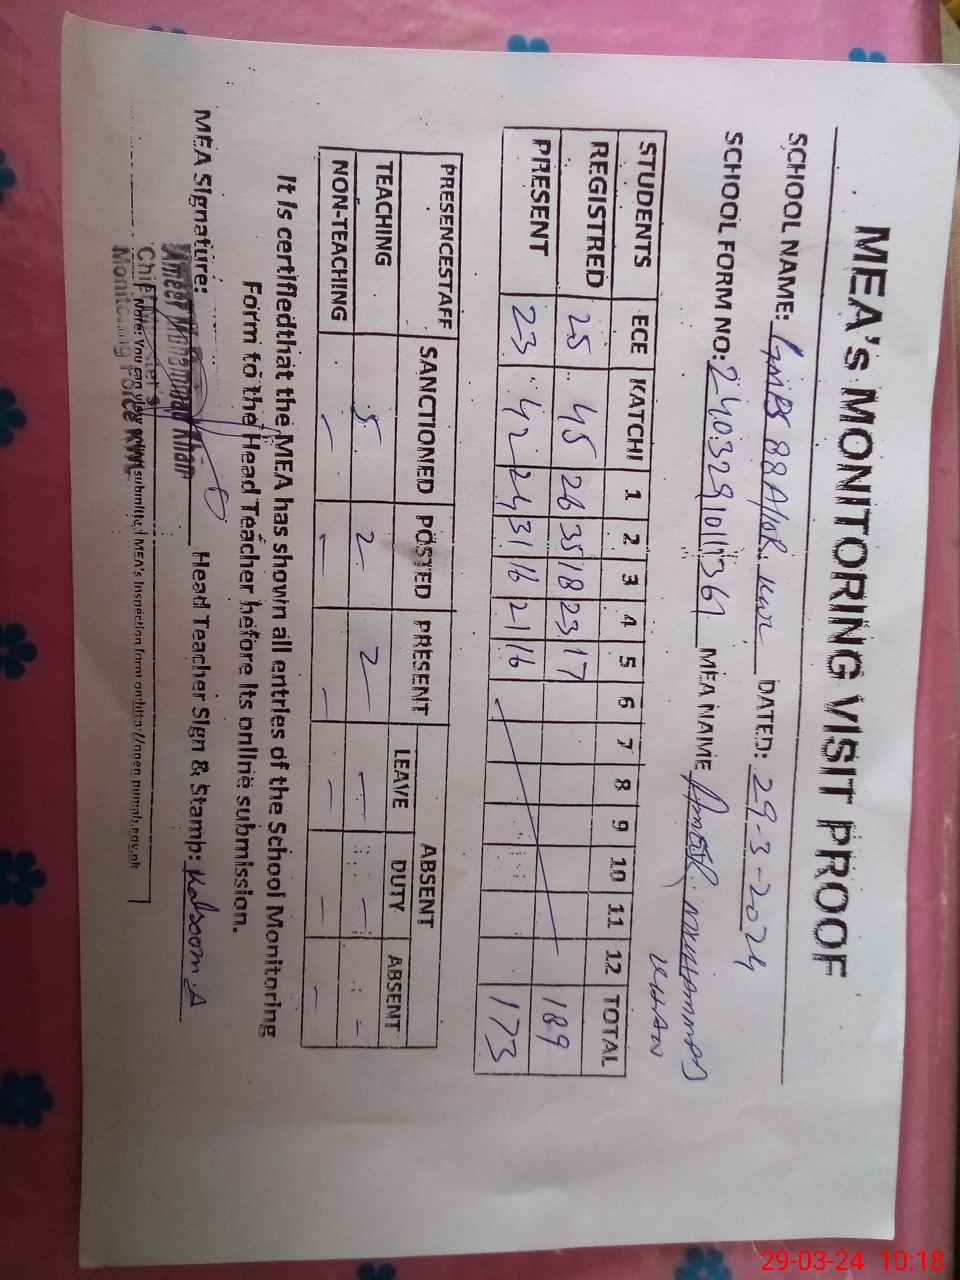 MEA's MONITORING VISIT PROOF
SCHOOL NAME: GMPS 88A/10R KWL DATED: 29-3-2024
SCHOOL FORM NO: 24032910111361 MEA NAME Ameer MUHAMMAD KHAN
STUDENTS ECE KATCHI 1 2 3 4 5 6 7 8 9 10 11 12 TOTAL
REGISTRED 25 45 26 35 18 23 17 189
PRESENT 23 42 24 31 16 21 16 173
PRESENCESTAFF SANCTIONED POSTED PRESENT ABSENT
LEAVE DUTY ABSENT
TEACHING 5 2 2 - - -
NON-TEACHING - - - - - -
It is certifiedthat the MEA has shown all entries of the School Monitoring
Form to the Head Teacher before its online submission.
MEA Signature: Head Teacher Sign & Stamp: Kalsoom A
Ameer Mohammad Khan
Chief Minister's
Monitoring Force KWL
Note: You can view submitted MEA's Inspection form on http://open.punjab.gov.pk
29-03-24 10:18